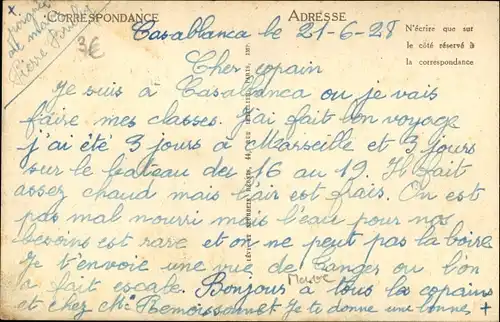 CORRESPONDANCE
ADRESSE
N'écrire que sur
le côté réservé à
la correspondance
3€
Casablanca le 21-6-28
Cher copain
Je suis à Casablanca ou je vais
faire mes classes. J'ai fait bon voyage
j'ai été 3 jours à Marseille et 3 jours
sur le bateau des 16 au 19. Il fait
assez chaud mais l'air est frais. On est
pas mal nourri mais l'eau pour nos
besoins est rare et on ne peut pas la boire
Je t'envoie une vue de Tanger ou l'on
a fait escale. Bonjours à tous la copains
Maroc
et chez Mr Remoissonnet Je te donne une bonne +
x
Pierre